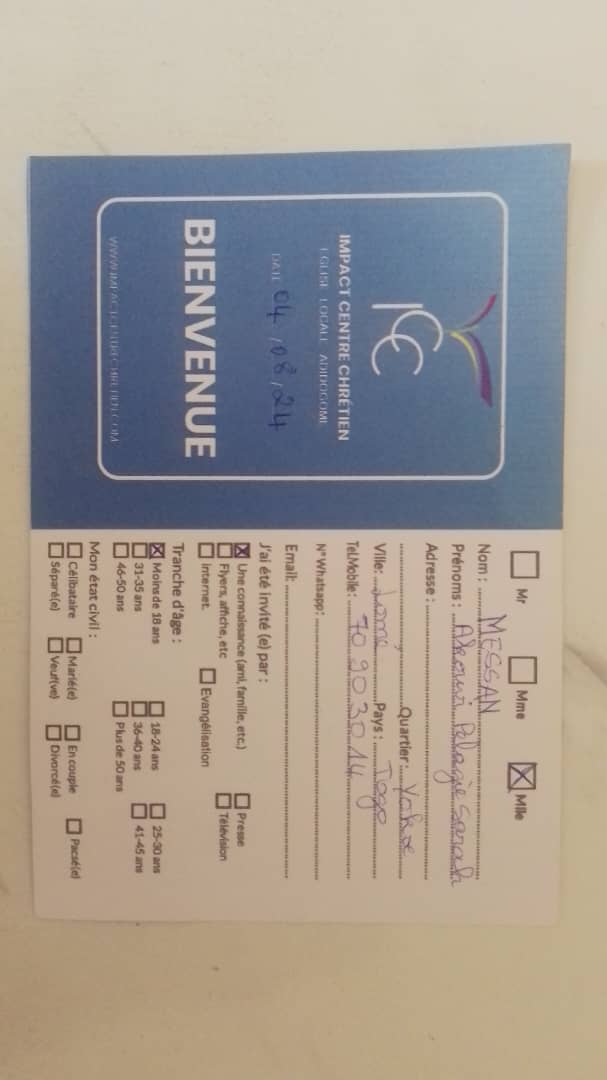 ICC
IMPACT CENTRE CHRÉTIEN
EGLISE LOCALE ADIDOGOME
DATE 04 / 08 / 24
BIENVENUE
WWW.IMPACTCENTRECHRETIEN.COM
Mr Mme Mlle
Nom : MESSAN
Prénoms : Akouvi Pelagie Sarah
Adresse :
Quartier : Yokoe
Ville: Lomé Pays : Togo
Tel.Mobile : 70 90 30 14
N° Whatsapp:
Email:
J'ai été invité (e) par :
Une connaissance (ami, famille, etc.) Presse
Flyers, affiche, etc Télévision
Internet. Evangélisation
Tranche d'âge :
Moins de 18 ans 18-24 ans 25-30 ans
31-35 ans 36-40 ans 41-45 ans
46-50 ans Plus de 50 ans
Mon état civil :
Célibataire Marié(e) En couple Pacsé(e)
Séparé(e) Veuf(ve) Divorcé(e)